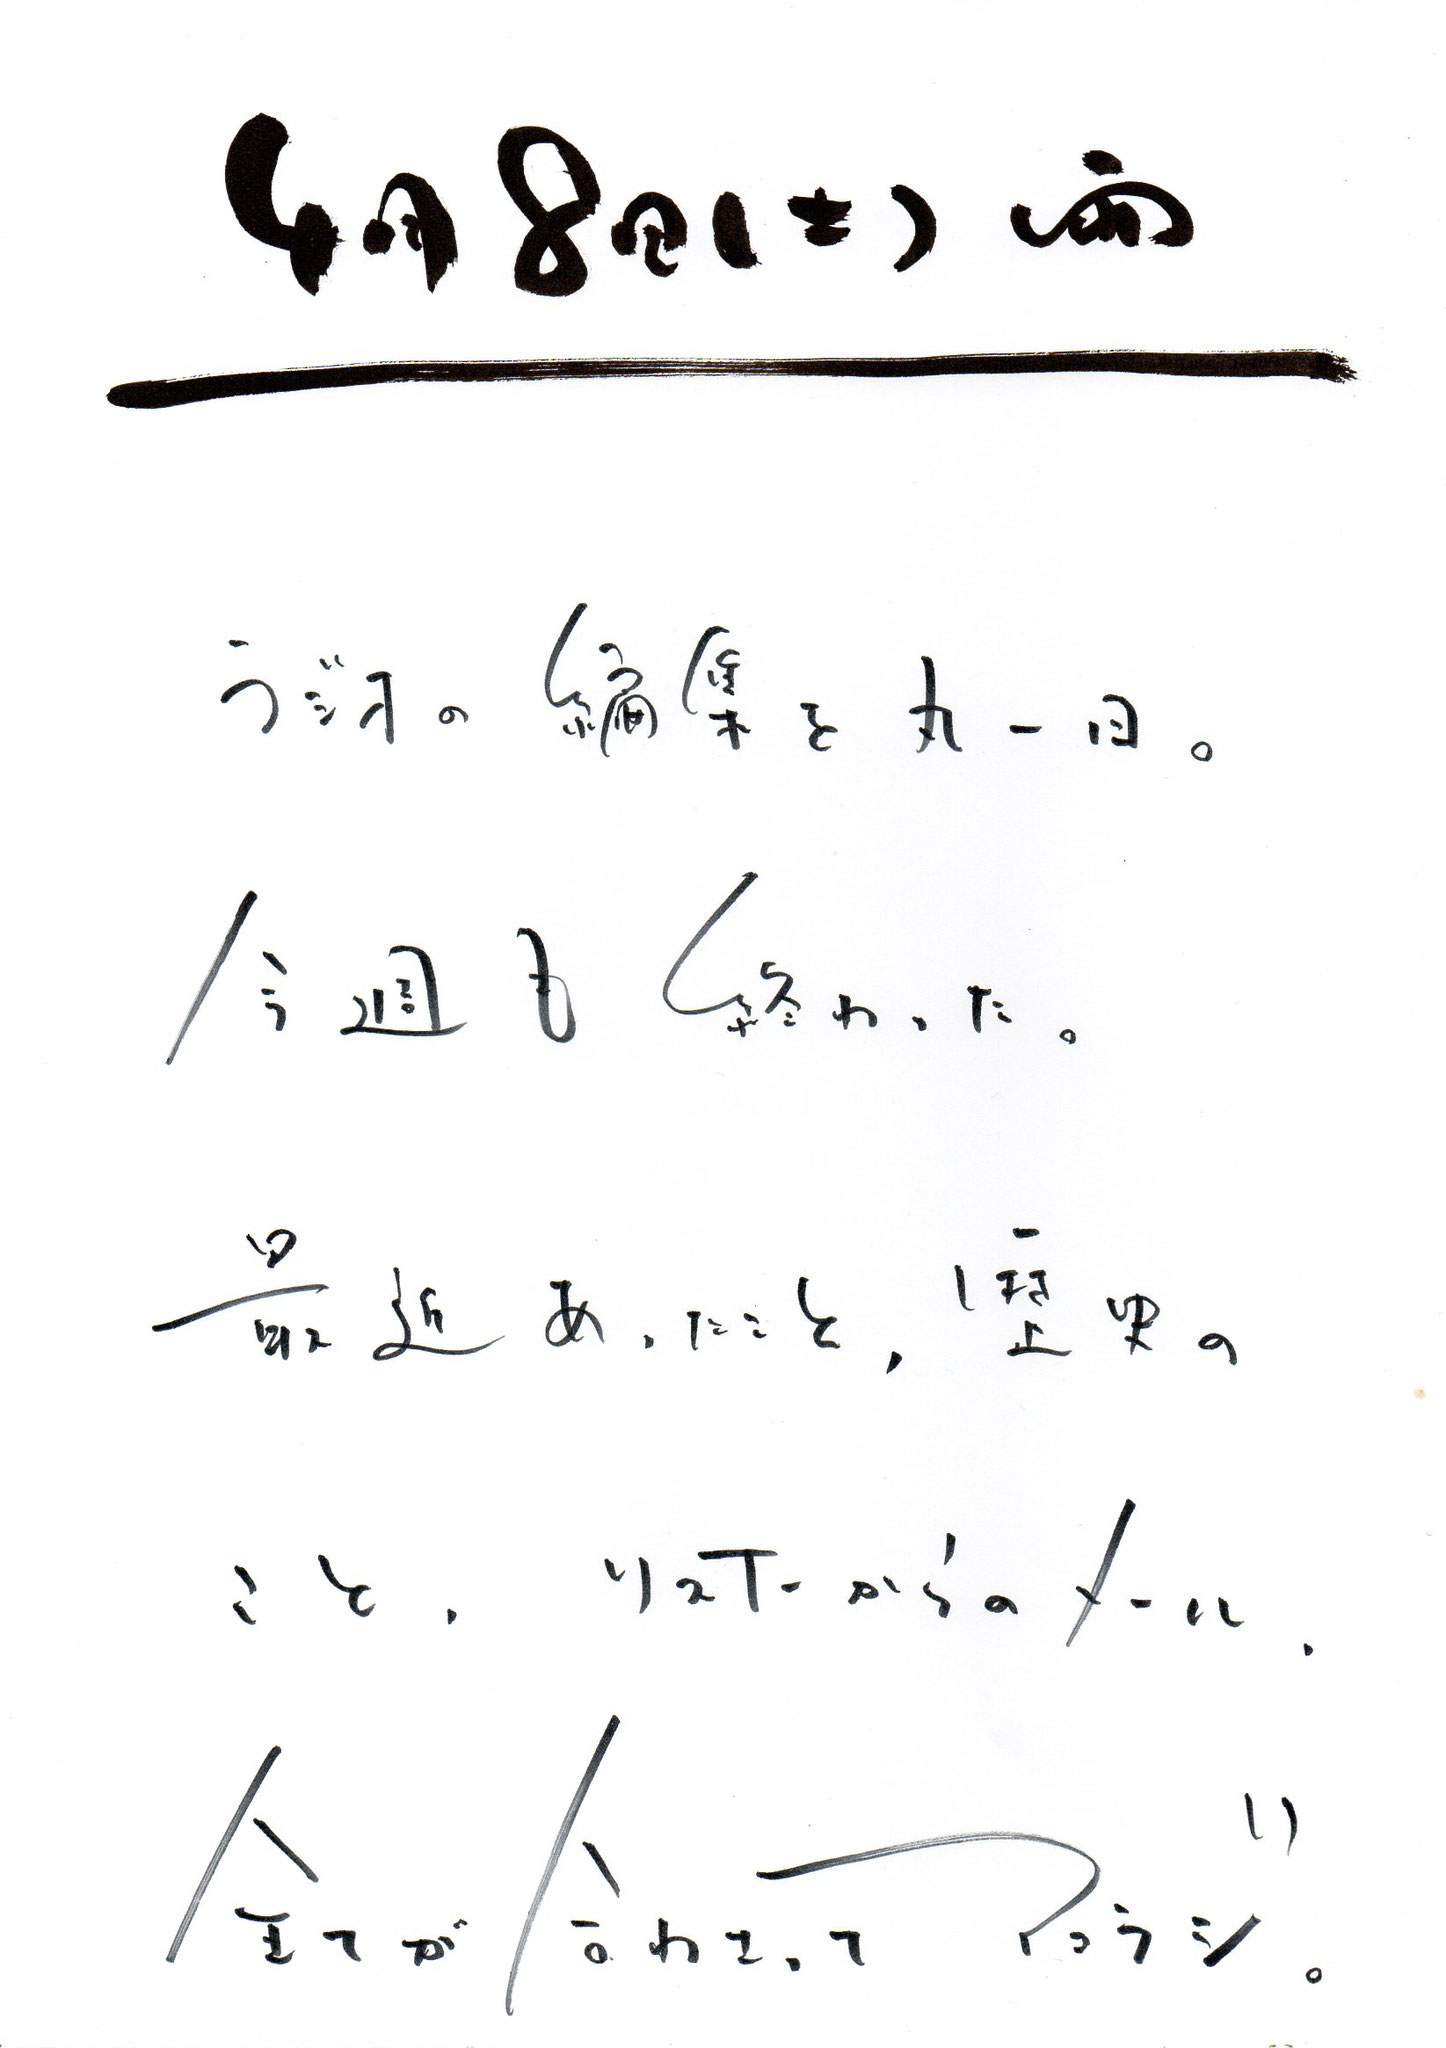 4月8日(土) 雨
ラジオの編集を丸一日。
今週も終わった。
最近あったこと、歴史の
こと、リスナーからのメール、
全てが合わさってマコラジ。